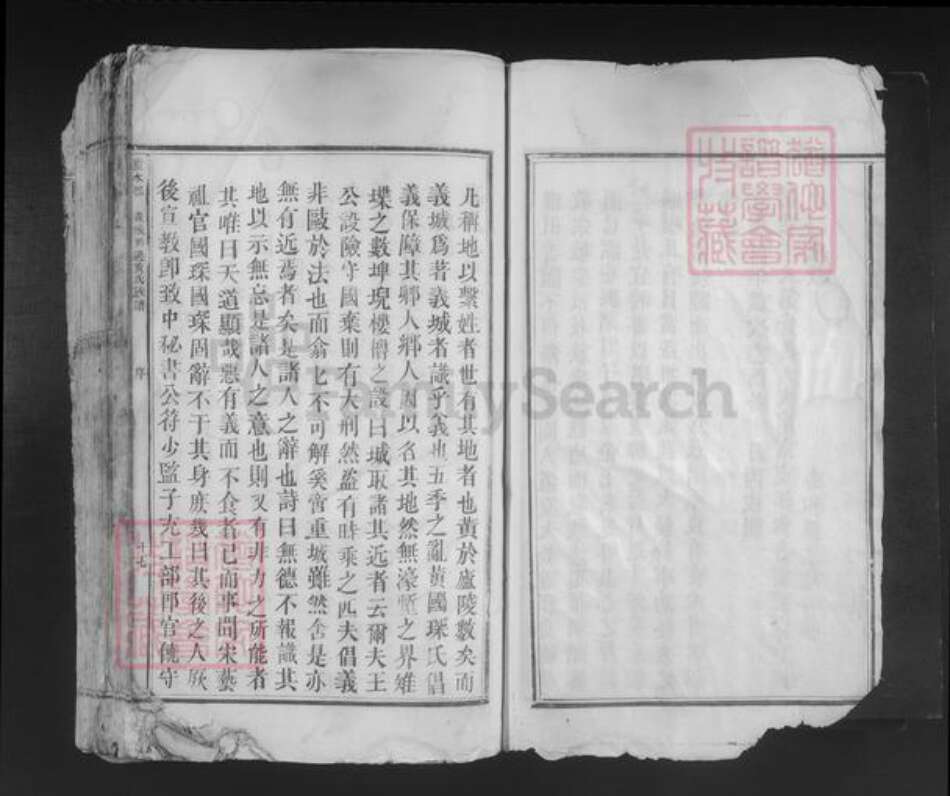 凡稱地以繫姓者世有其地者也黃於廬陵數矣而
義城爲著義城者識乎義也五季之亂黃國琛氏倡
義保障其鄉人鄉人因以名其地然無濠塹之界雉
堞之數埤堄樓櫓之設曰城取諸其近者云爾夫王
公設險守國棄則有大刑然盜有時乘之匹夫倡義
非敺於法也而翕比不可解奚啻重城雖然舍是亦
無有近焉者矣是諸人之辭也詩曰無德不報識其
地以示無忘是諸人之意也則又有非力之所能者
其唯曰天道顯哉惡有義而不食者已而事聞宋藝
祖官國琛國琛固辭不于其身庶幾曰其後之人厥
後宣教卽致中秘書公符少監子尤工部郎官僥守
十七
序
FamilySearch